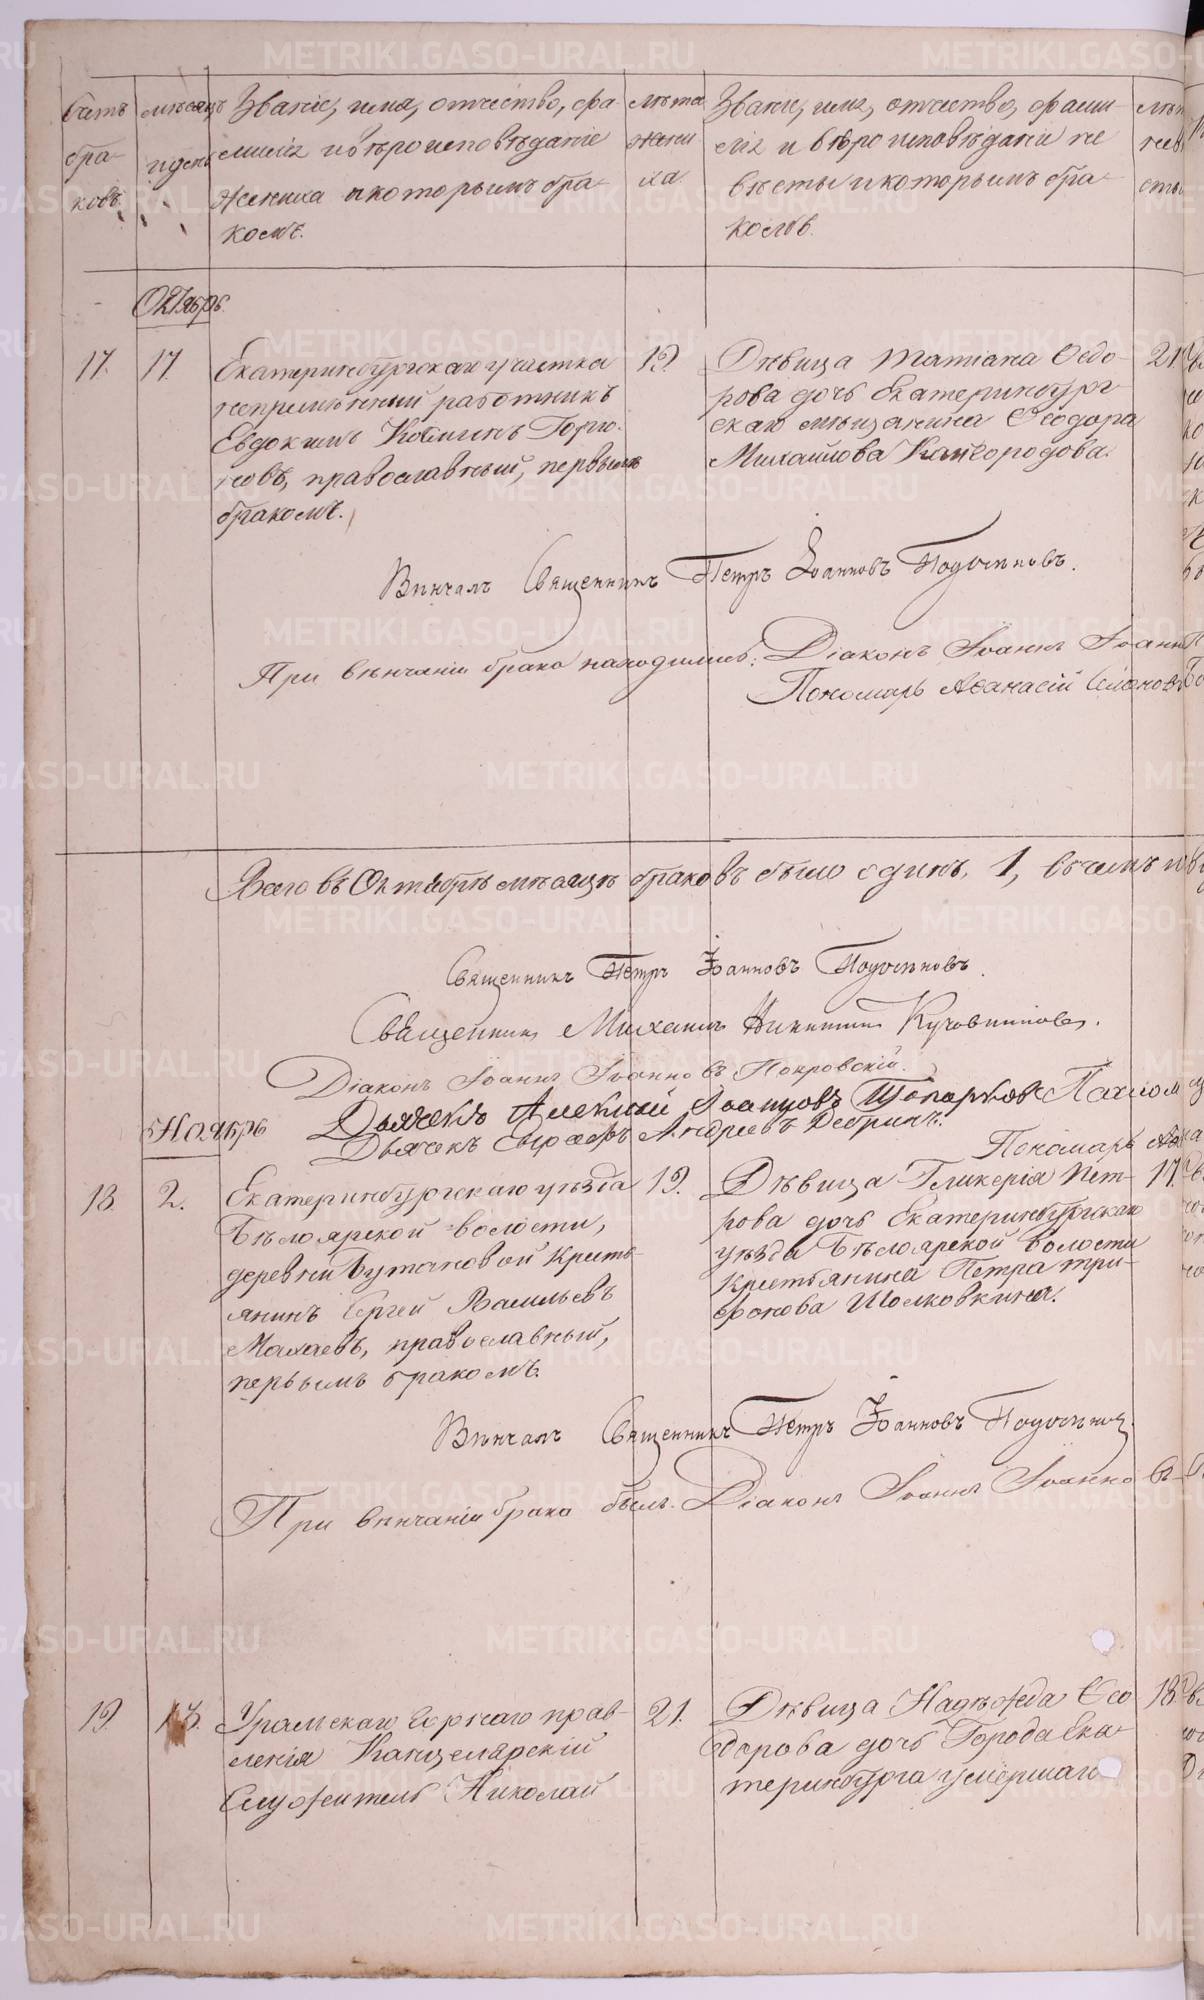 Счетъ браковъ.
Мѣсяцъ и день
Званіе, имя, отчество, фа-
милія и вѣроисповѣданіе
жениха и которымъ бра-
комъ.
Лѣта жени ха.
Званіе, имя, отчество, фами-
лія и вѣроисповѣданіе не
вѣсты и которымъ бра-
комъ.
Октябрь.
17. 17.
Екатеринбургскаго участка
непремѣнный работникъ
Евдокимъ Козминъ Горю-
новъ, православный, первымъ
бракомъ.
19.
Дѣвица Татіана Ѳедо-
рова дочь Екатеринбург-
скаго мѣщанина Ѳеодора
Михайлова Кайгородова.
21.
Вѣнчалъ Священникъ Петръ Іоанновъ
При вѣнчаніи брака находились: Діаконъ Іоаннъ Іоанн
Пономарь Аѳанасій
Всего въ Октябрѣ мѣсяцѣ браковъ было одинъ, 1, въ чемъ и
Священникъ Петръ Іоанновъ
Священникъ Михаилъ Никитинъ
Діаконъ Іоаннъ Іоанновъ Покровскій.
Дьячекъ Алексій Іоанновъ Топорковъ
Ноябрь
Дьячекъ Андреевъ
Пономарь
18. 2.
Екатеринбургскаго уѣзда
Бѣлоярской волости,
деревни Бутаковой крестъ-
янинъ Сергей Васильевъ
Махаевъ, православный,
первымъ бракомъ.
19.
Дѣвица Гликерія Пет-
рова дочь Екатеринбургскаго
уѣзда Бѣлоярской волости
крестьянина Петра Три-
фонова Шолковкина.
17.
Вѣнчалъ Священникъ Петръ Іоанновъ
При вѣнчаніи брака былъ. Діаконъ Іоаннъ Іоанновъ
19. 13.
Уральскаго горнаго прав-
ленія Канцелярскій
Служитель Николай
21.
Дѣвица Надѣжда Ѳео
дорова дочь Города Ека-
теринбурга умершаго
18.
METRIKI.GASO-URAL.RU